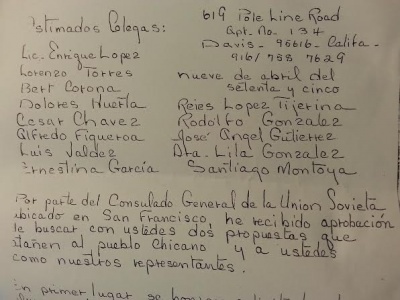 619 Pole Line Road
Estimados Colegas:
Apt. No. 134
Davis - 95616 - Califa -
916/ 758 7629
Lic. Enrique Lopez
Lorenzo Torres nueve de abril del
Bert Corona setenta y cinco
Dolores Huerta Reies Lopez Tijerina
Cesar Chavez Rodolfo Gonzalez
Alfredo Figueroa José Angel Gutierrez
Luis Valdez Dra. Lila Gonzalez
Ernestina García Santiago Montoya
Por parte del Consulado General de la Union Sovieta
ubicado en San Francisco, he recibido aprobación
de buscar con ustedes dos propuestas que
atañen al pueblo Chicano y a ustedes
como nuestros representantes.
En primer lugar se